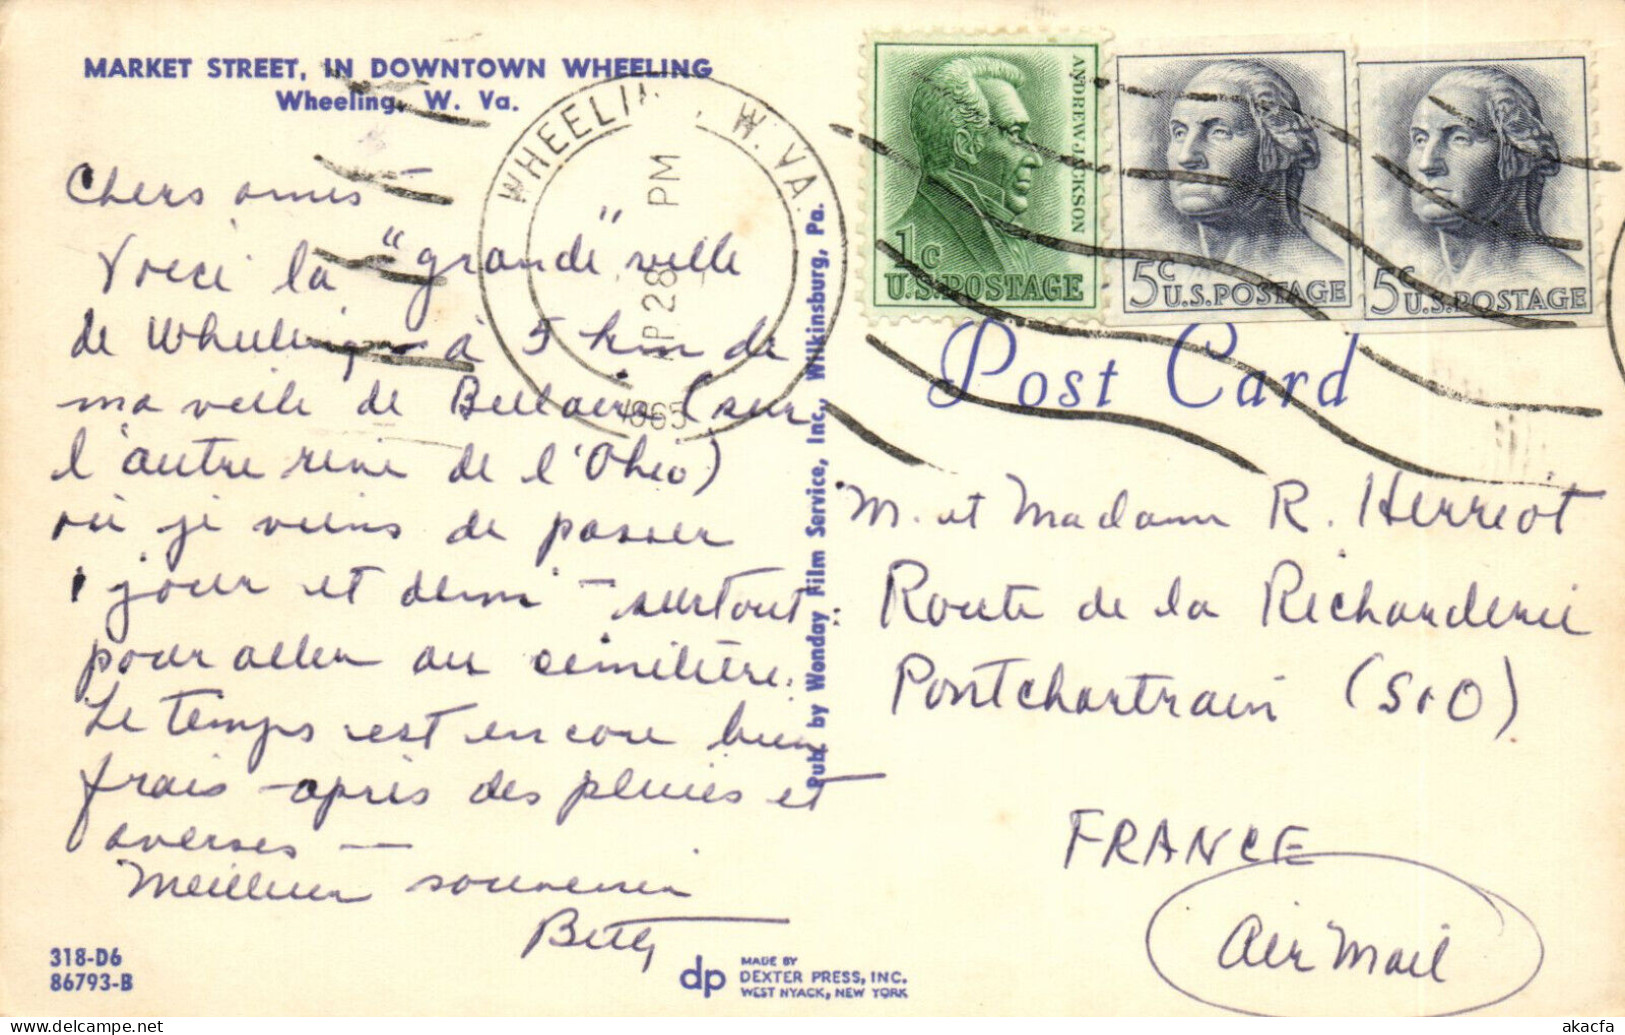 MARKET STREET, IN DOWNTOWN WHEELING
Wheeling, W. Va.
Chers amis
Voici la "grande" ville
de Wheeling à 5 km de
ma ville de Bellaire (sur
l'autre rive de l'Ohio)
où je viens de passer
1 jour et demi - surtout
pour aller au cimetière.
Le temps est encore bien
frais - après des pluies et
averses -
Meilleur souvenir
Betty
318-D6
86793-B
dp
MADE BY
DEXTER PRESS, INC.
WEST NYACK, NEW YORK
Pub. by Wonday Film Service, Inc., Wilkinsburg, Pa.
WHEELING, W. VA.
PM
28
1965
ANDREW JACKSON
1c
U.S. POSTAGE
5c U.S. POSTAGE
5c U.S. POSTAGE
Post Card
M. et Madame R. Herriot
Route de la Richarderie
Pontchartrain (S&O)
FRANCE
Air Mail
akacfa